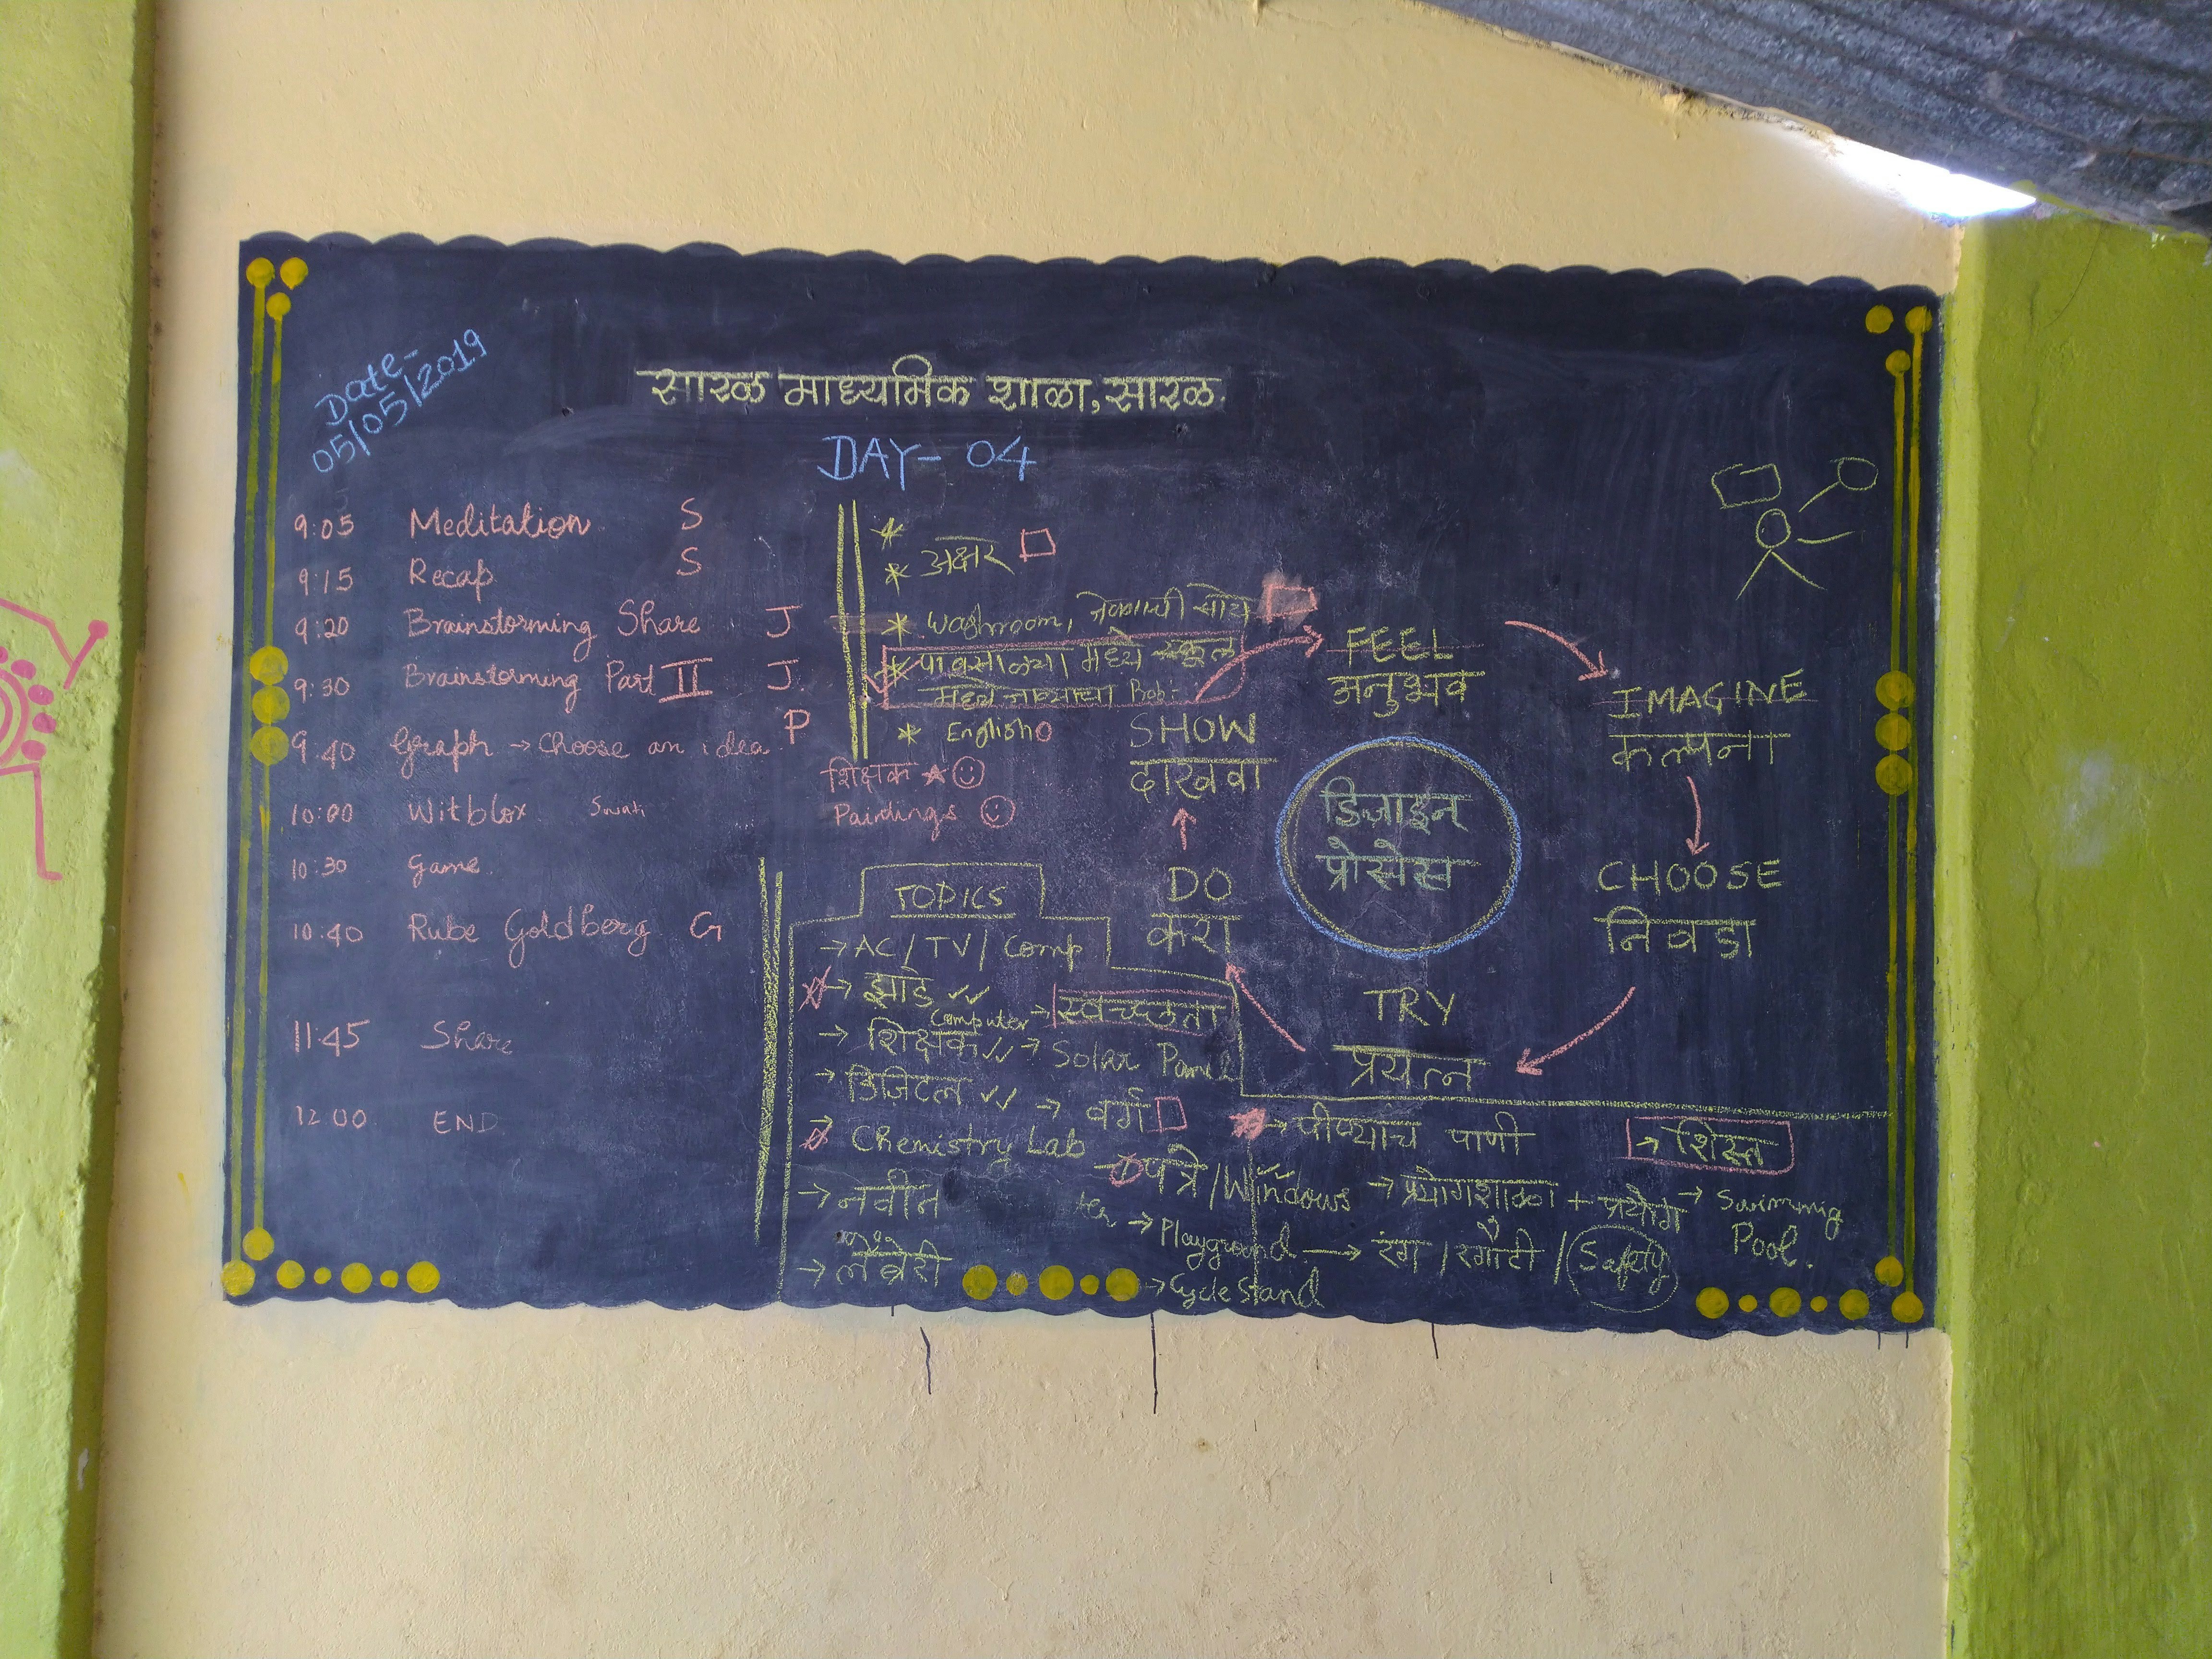 Date-
05/05/2019
सारळ माध्यमिक शाळा, सारळ.
DAY- 04
9:05 Meditation S
9:15 Recap S
9:20 Brainstorming Share J
9:30 Brainstorming Part II J.
9:40 Graph → Choose an idea. P
10:00 Witblox Swati
10:30 Game.
10:40 Rube Goldberg G
11:45 Share
12:00 END
* अक्षर
* Washroom, जेवणाची सोय
* पावसाळ्या मध्ये स्कूल
मध्ये
* English
शिक्षक
Paintings
FEEL
अनुभव
IMAGINE
कल्पना
CHOOSE
निवडा
TRY
प्रयत्न
DO
करा
SHOW
दाखवा
डिजाइन
प्रोसेस
TOPICS
→ AC / TV / Comp
→ झाडे ✓✓
Computer → स्वच्छता
→ शिक्षक ✓✓ → Solar Panel
→ डिजिटल ✓✓ → वर्ग
→ Chemistry Lab
→ नवीन
→ लॅब्रेरी
पत्रे / Windows
→ Playground
→ Cycle Stand
→ पीण्याच पाणी
→ शिस्त
→ प्रयोगशाळा + प्रयोग
→ रंग / रंगोटी / Safety
→ Swimming
Pool.